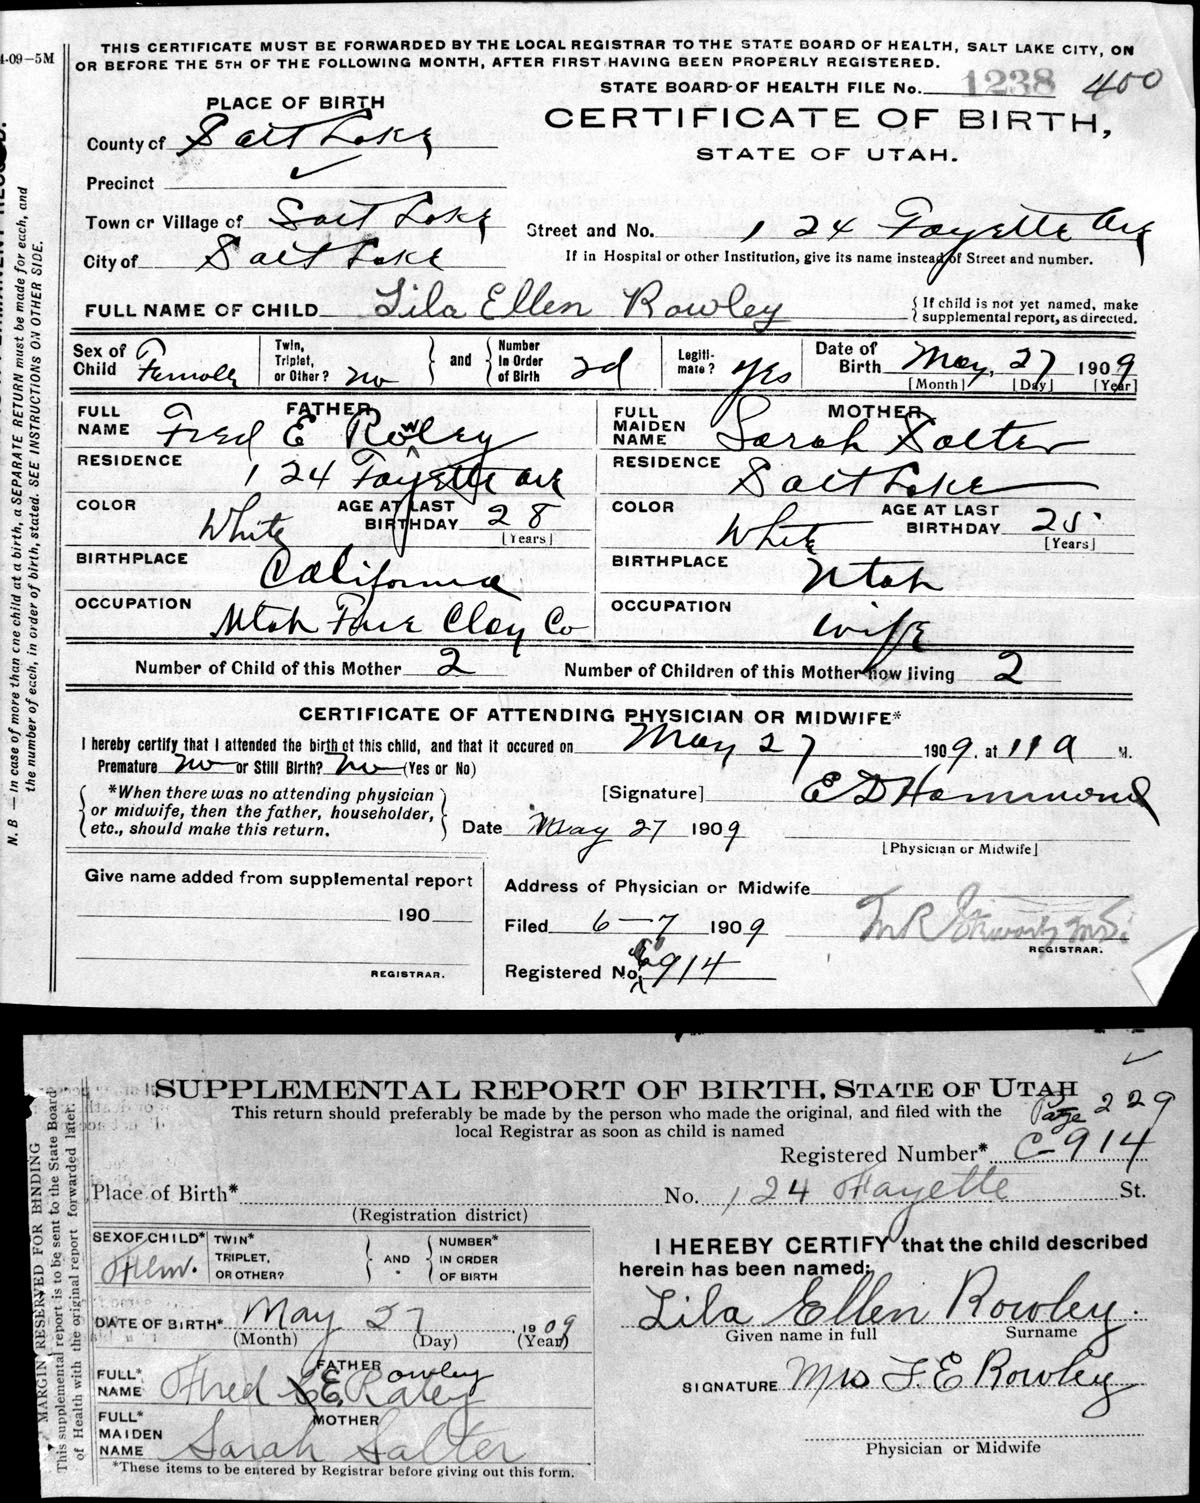 4-09-5M
THIS CERTIFICATE MUST BE FORWARDED BY THE LOCAL REGISTRAR TO THE STATE BOARD OF HEALTH, SALT LAKE CITY, ON
OR BEFORE THE 5TH OF THE FOLLOWING MONTH, AFTER FIRST HAVING BEEN PROPERLY REGISTERED.
STATE BOARD OF HEALTH FILE No. 1238 400
CERTIFICATE OF BIRTH,
STATE OF UTAH.
PLACE OF BIRTH
County of Salt Lake
Precinct ✓
Town or Village of Salt Lake
City of Salt Lake
Street and No. 124 Fayette Ave
If in Hospital or other Institution, give its name instead of Street and number.
FULL NAME OF CHILD Lila Ellen Rowley
{ If child is not yet named, make supplemental report, as directed.
Sex of Child Female
Twin, Triplet, or Other? no } and { Number In Order of Birth 2d
Legitimate? Yes
Date of Birth May, 27 1909
[Month] [Day] [Year]
FATHER
FULL NAME Fred E Rowley
RESIDENCE 124 Fayette Ave
COLOR White AGE AT LAST BIRTHDAY 28
[Years]
BIRTHPLACE California
OCCUPATION Utah Fire Clay Co
MOTHER
FULL MAIDEN NAME Sarah Salter
RESIDENCE Salt Lake
COLOR White AGE AT LAST BIRTHDAY 25
[Years]
BIRTHPLACE Utah
OCCUPATION Wife
Number of Child of this Mother 2 Number of Children of this Mother now living 2
CERTIFICATE OF ATTENDING PHYSICIAN OR MIDWIFE*
I hereby certify that I attended the birth of this child, and that it occured on May 27 1909, at 11 a M.
Premature no or Still Birth? no (Yes or No)
{ *When there was no attending physician or midwife, then the father, householder, etc., should make this return. }
[Signature] E D Hammond
Date May 27 1909
[Physician or Midwife]
Give name added from supplemental report
190
REGISTRAR.
Address of Physician or Midwife
Filed 6-7 1909
REGISTRAR.
Registered No. C 914
N. B — In case of more than one child at a birth, a SEPARATE RETURN must be made for each, and
the number of each, in order of birth, stated. SEE INSTRUCTIONS ON OTHER SIDE.
SUPPLEMENTAL REPORT OF BIRTH, STATE OF UTAH
This return should preferably be made by the person who made the original, and filed with the
local Registrar as soon as child is named
Page 229
Registered Number* C-914
Place of Birth* No. 124 Fayette St.
(Registration district)
SEX OF CHILD* Fem.
TWIN* TRIPLET, OR OTHER? } AND { NUMBER* IN ORDER OF BIRTH
DATE OF BIRTH* May 27 1909
(Month) (Day) (Year)
FATHER
FULL* NAME Fred E. Rowley
MOTHER
FULL* MAIDEN NAME Sarah Salter
*These items to be entered by Registrar before giving out this form.
I HEREBY CERTIFY that the child described
herein has been named:
Lila Ellen Rowley.
Given name in full Surname
SIGNATURE Mrs F. E Rowley
Physician or Midwife
MARGIN RESERVED FOR BINDING
This supplemental report is to be sent to the State Board
of Health with the original report forwarded later.